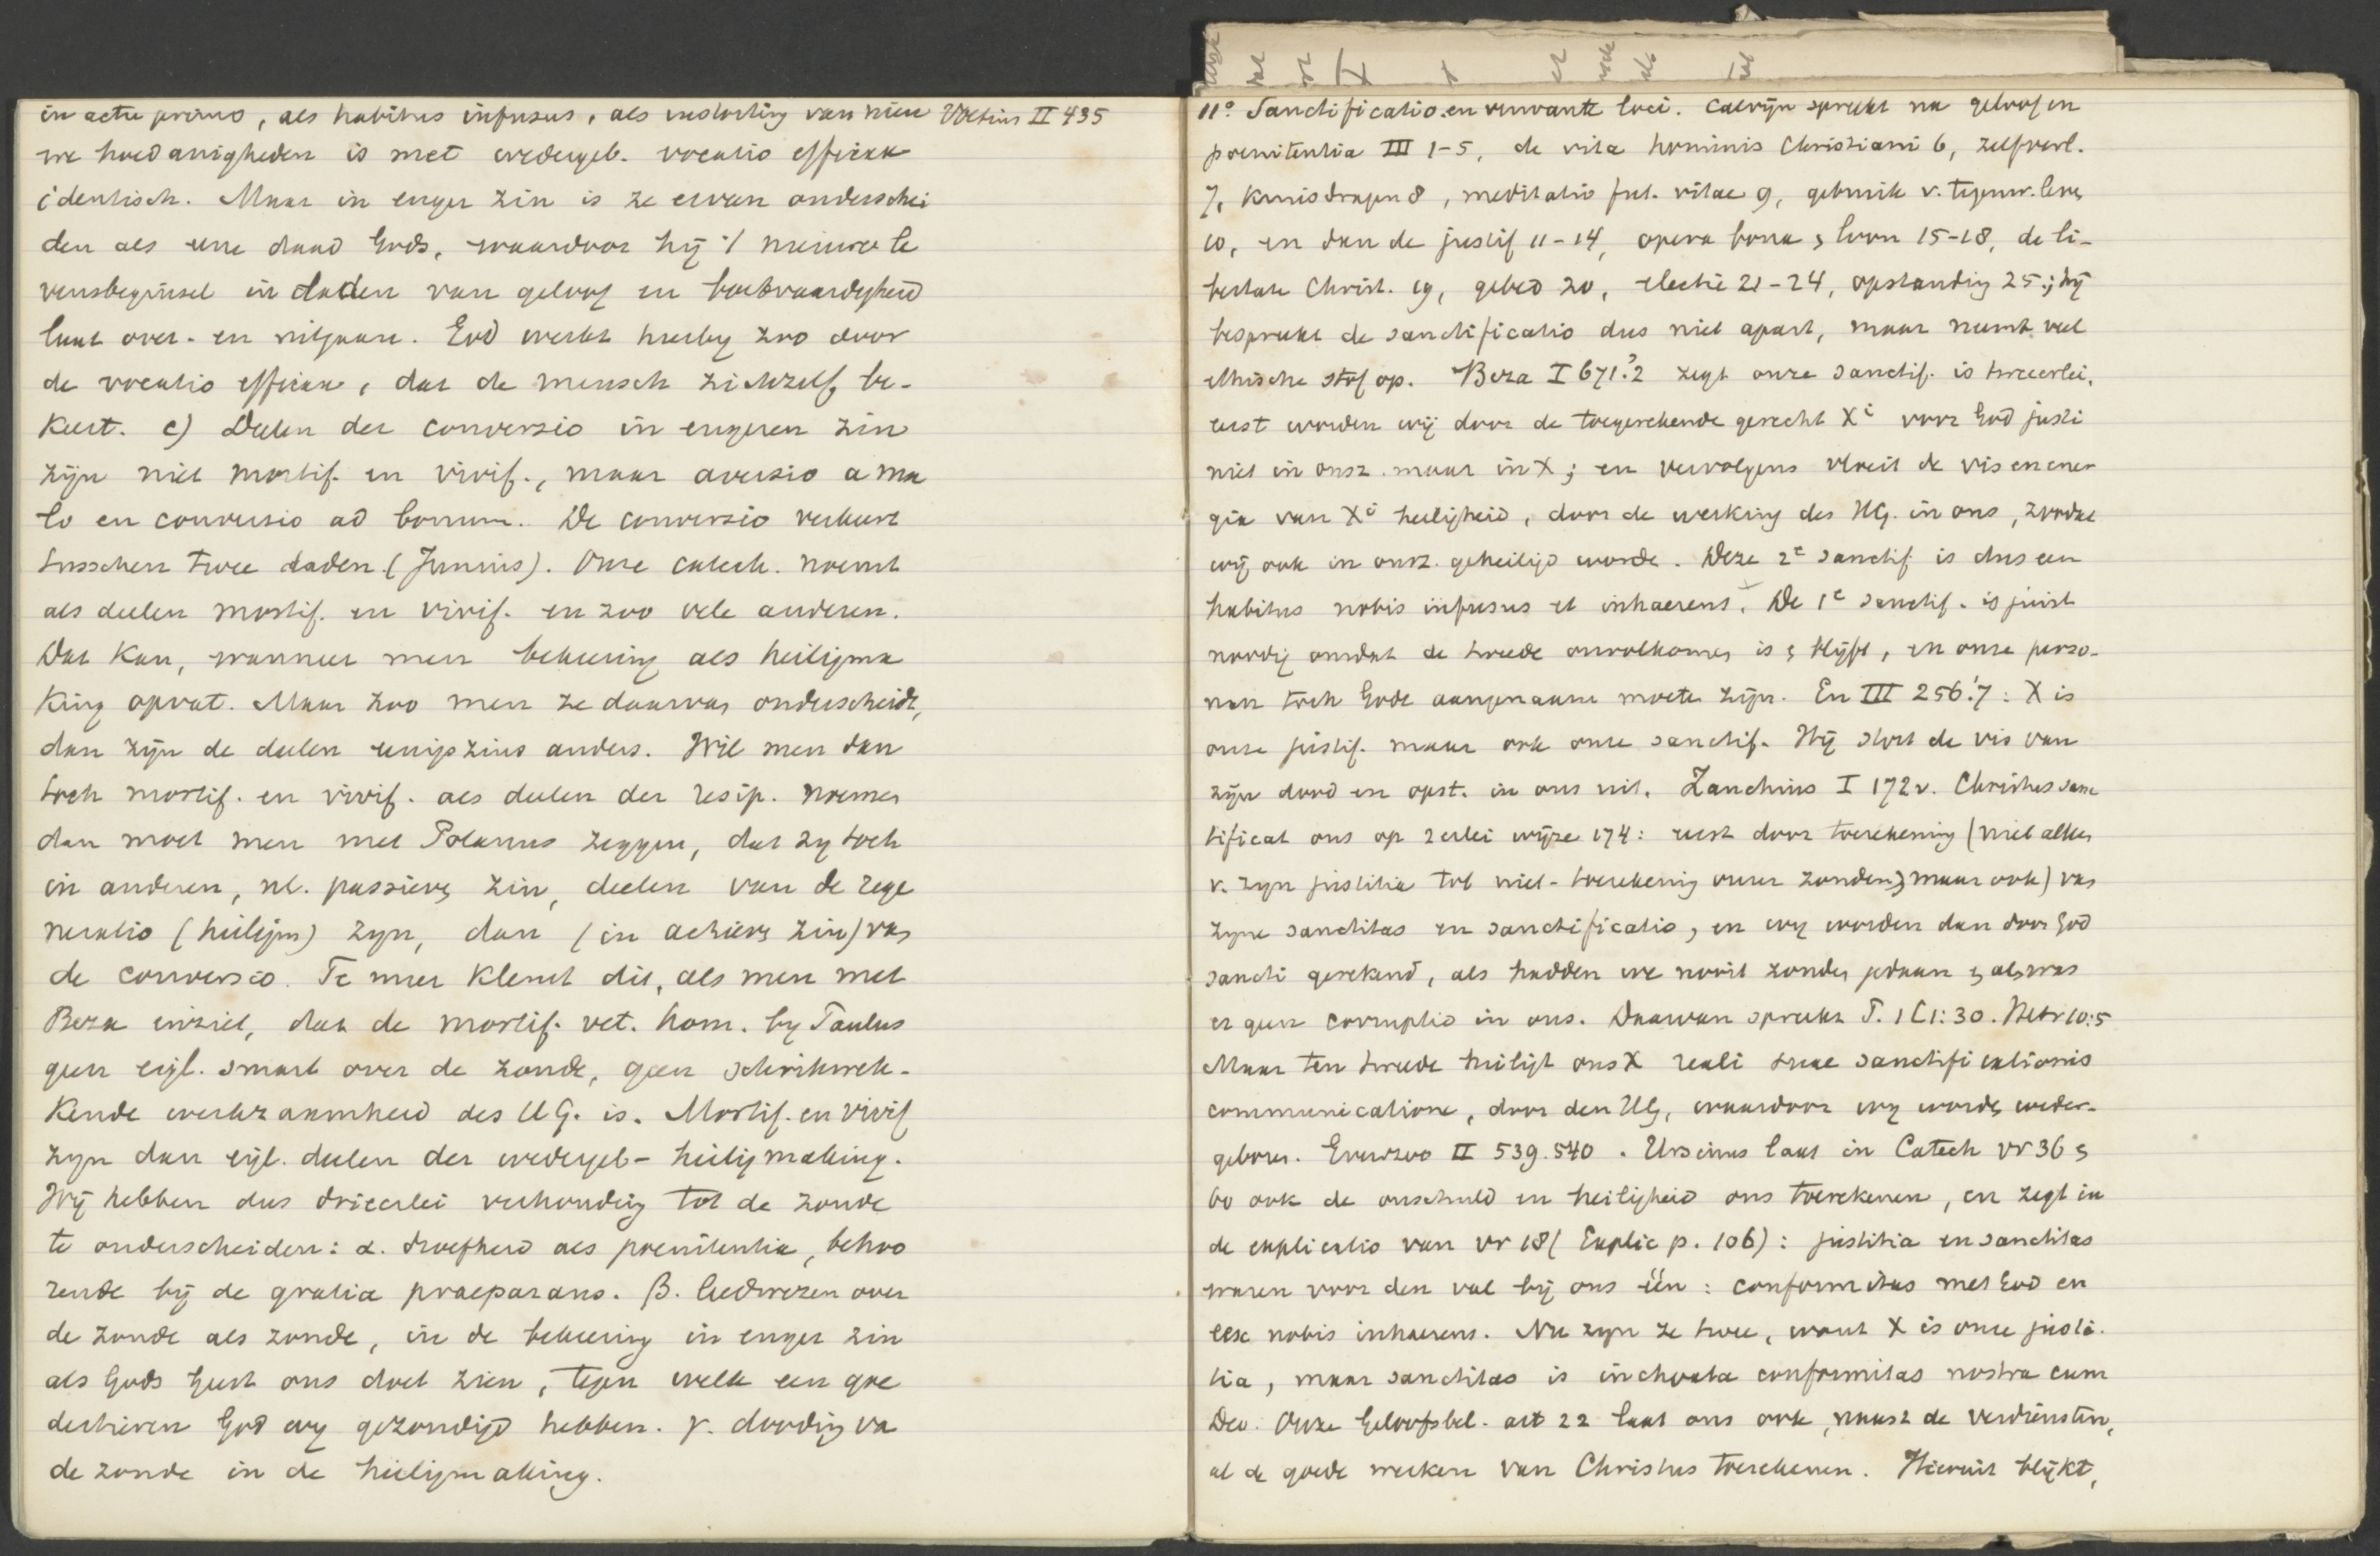 in actu primo, als habitus infusus, als instorting van nieu Voetius II 435
we hoedanigheden is met wedergeb. vocatio efficax
identisch. Maar in enger zin is ze ervan onderschei
den als eene daad Gods, waardoor hij 't nieuwe le
vensbeginsel in daden van geloof en boetvaardigheid
laat over- en uitgaan. God werkt hierbij zoo door
de vocatio efficax, dat de mensch zichzelf be-
keert. c) Deelen der conversio in engeren zin
zijn niet mortif. en vivif., maar aversio a ma
lo en conversio ad bonum. De conversio verkeert
tusschen twee daden (Junius). Onze catech. noemt
als deelen mortif. en vivif. en zoo vele anderen.
Dat kan, wanneer men bekeering als heiligma
king opvat. Maar zoo men ze daarvan onderscheidt,
dan zijn de deelen eenigszins anders. Wil men dan
toch mortif. en vivif. als deelen der resip. noemen
dan moet men met Polanus zeggen, dat zij toch
in anderen, nl. passieven zin, deelen van de rege
neratio (heiligm) zijn, dan (in actieven zin) van
de conversio. Te meer klemt dit, als men met
Beza inziet, dat de mortif. vet. hom. bij Paulus
geen eigl. smart over de zonde, geen schrikwek-
kende werkzaamheid des HG. is. Mortif. en vivif
zijn dan eigl. deelen der wedergeb- heiligmaking.
Wij hebben dus drieerlei verhouding tot de zonde
te onderscheiden: α. droefheid als poenitentia, behoo
rende bij de gratia praeparans. β. leedwezen over
de zonde als zonde, in de bekeering in enger zin
als Gods Geest ons doet zien, tegen welk een goe
dertieren God wij gezondigd hebben. γ. dooding va
de zonde in de heiligmaking.
11° Sanctificatio en verwante loci. Calvijn spreekt na geloof en
poenitentia III 1-5, de vita hominis Christiani 6, zelfverl.
7, kruisdragen 8, meditatio fut. vitae 9, gebruik v. tegenw. leven
10, en dan de justif 11-14, opera bona, loon 15-18, de li-
bertate Christ. 19, gebed 20, electie 21-24, opstanding 25; hij
bespreekt de sanctificatio dus niet apart, maar neemt veel
ethische stof op. Beza I 671.2 zegt onze sanctif. is tweeerlei,
eerst worden wij door de toegerekende gerecht Xi voor God justi
niet in onsz. maar in X; en vervolgens vloeit de vis en ener
gia van Xi heiligheid, door de werking des HG. in ons, zoodat
wij ook in onsz. geheiligd worde. Deze 2e sanctif is dus een
habitus nobis infusus et inhaerens. De 1e sanctif. is juist
noodig omdat de tweede onvolkomen is & blijft, en onze perso-
nen toch Gode aangenaam moeten zijn. En III 256.7: X is
onze justif. maar ook onze sanctif. Hij stort de vis van
zijn dood en opst. in ons uit. Zanchius I 172v. Christus sanc
tificat ons op 2erlei wijze 174: eerst door toerekening (niet alleen
v. zijn justitia tot niet-toerekening onzer zonden, maar ook) van
zijne sanctitas en sanctificatio, en wij worden dan door God
sancti gerekend, als hadden we nooit zonden gedaan & als was
er geen corruptio in ons. Daarvan spreekt P. 1 C 1:30. Hebr 10:5
Maar ten tweede heiligt ons X reali suae sanctificationis
communicatione, door den HG, waardoor wij worden weder-
geboren. Evenzoo II 539.540. Ursinus laat in Catech vr 36 &
60 ook de onschuld en heiligheid ons toerekenen, en zegt in
de explicatio van vr 18 (Explic p. 106): justitia en sanctitas
waren voor den val bij ons één: conformitas met God en
esse nobis inhaerens. Nu zijn ze twee, want X is onze justi-
tia, maar sanctitas is inchoata conformitas nostra cum
Deo. Onze Geloofsbel. art 22 laat ons ook, naast de verdiensten,
al de goede werken van Christus toerekenen. Hieruit blijkt,